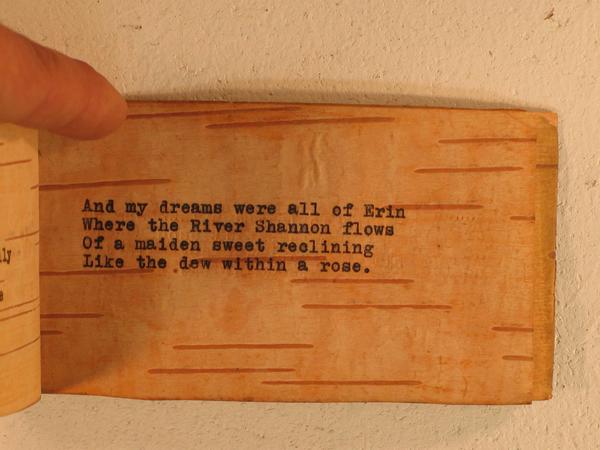 And my dreams were all of Erin
Where the River Shannon flows
Of a maiden sweet reclining
Like the dew within a rose.